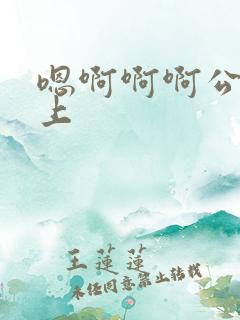 嗯啊啊啊公
上
王莲莲
未经同意禁止转载